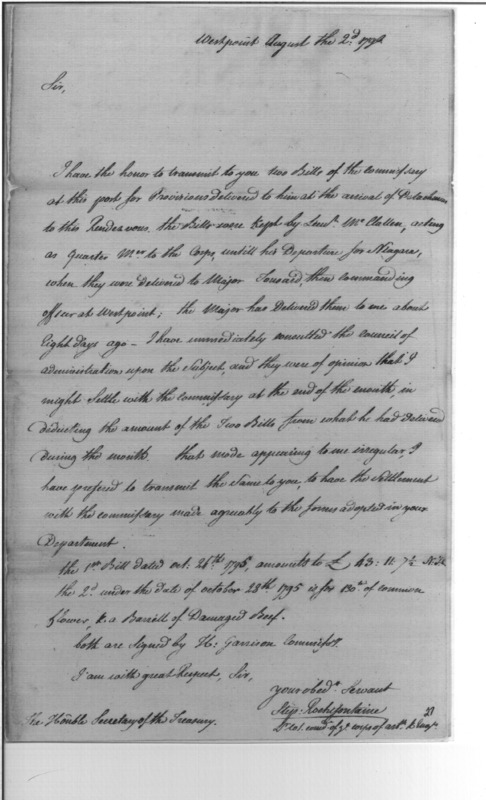 Westpoint August the 2d. 1796
Sir,
I have the honor to transmit to you two Bills of the commissary
at this post for Provisions delivered to him at the arrival of Detachments
to this Rendezvous. the Bills were Kept by Lieut. McClallen, acting
as quarter Mer. to the Corps, untill his Departure for Niagara,
when they were delivered to Major Tousard, then commanding
officer at Westpoint; the Major has Delivered them to me about
Eight days ago - I have immediately consulted the council of
administration upon the Subject, and they were of opinion that I
might Settle with the commissary at the end of the month, in
deducting the amount of the Two Bills from what he had Delivered
during the month. that mode appearing to me irregular, I
have prefered to transmit the Same to you, to have the Settlement
with the commissary made agreeably to the forms adopted in your
Department.
the 1st. Bill dated oct: 26th. 1795, amounts to £ 43: 11. 7½
the 2d. under the Date of october 28th 1795 is for of common
flower, & a Barrill of Damaged Beef.
both are Signed by H: Garrison Commissy.
I am with great Respect, Sir,
your obedt. Servant
Step. Rochefontaine
Lt. Col. comdt. of ye. corps of arty. & Engrs.
The Honble Secretary of the Treasury.